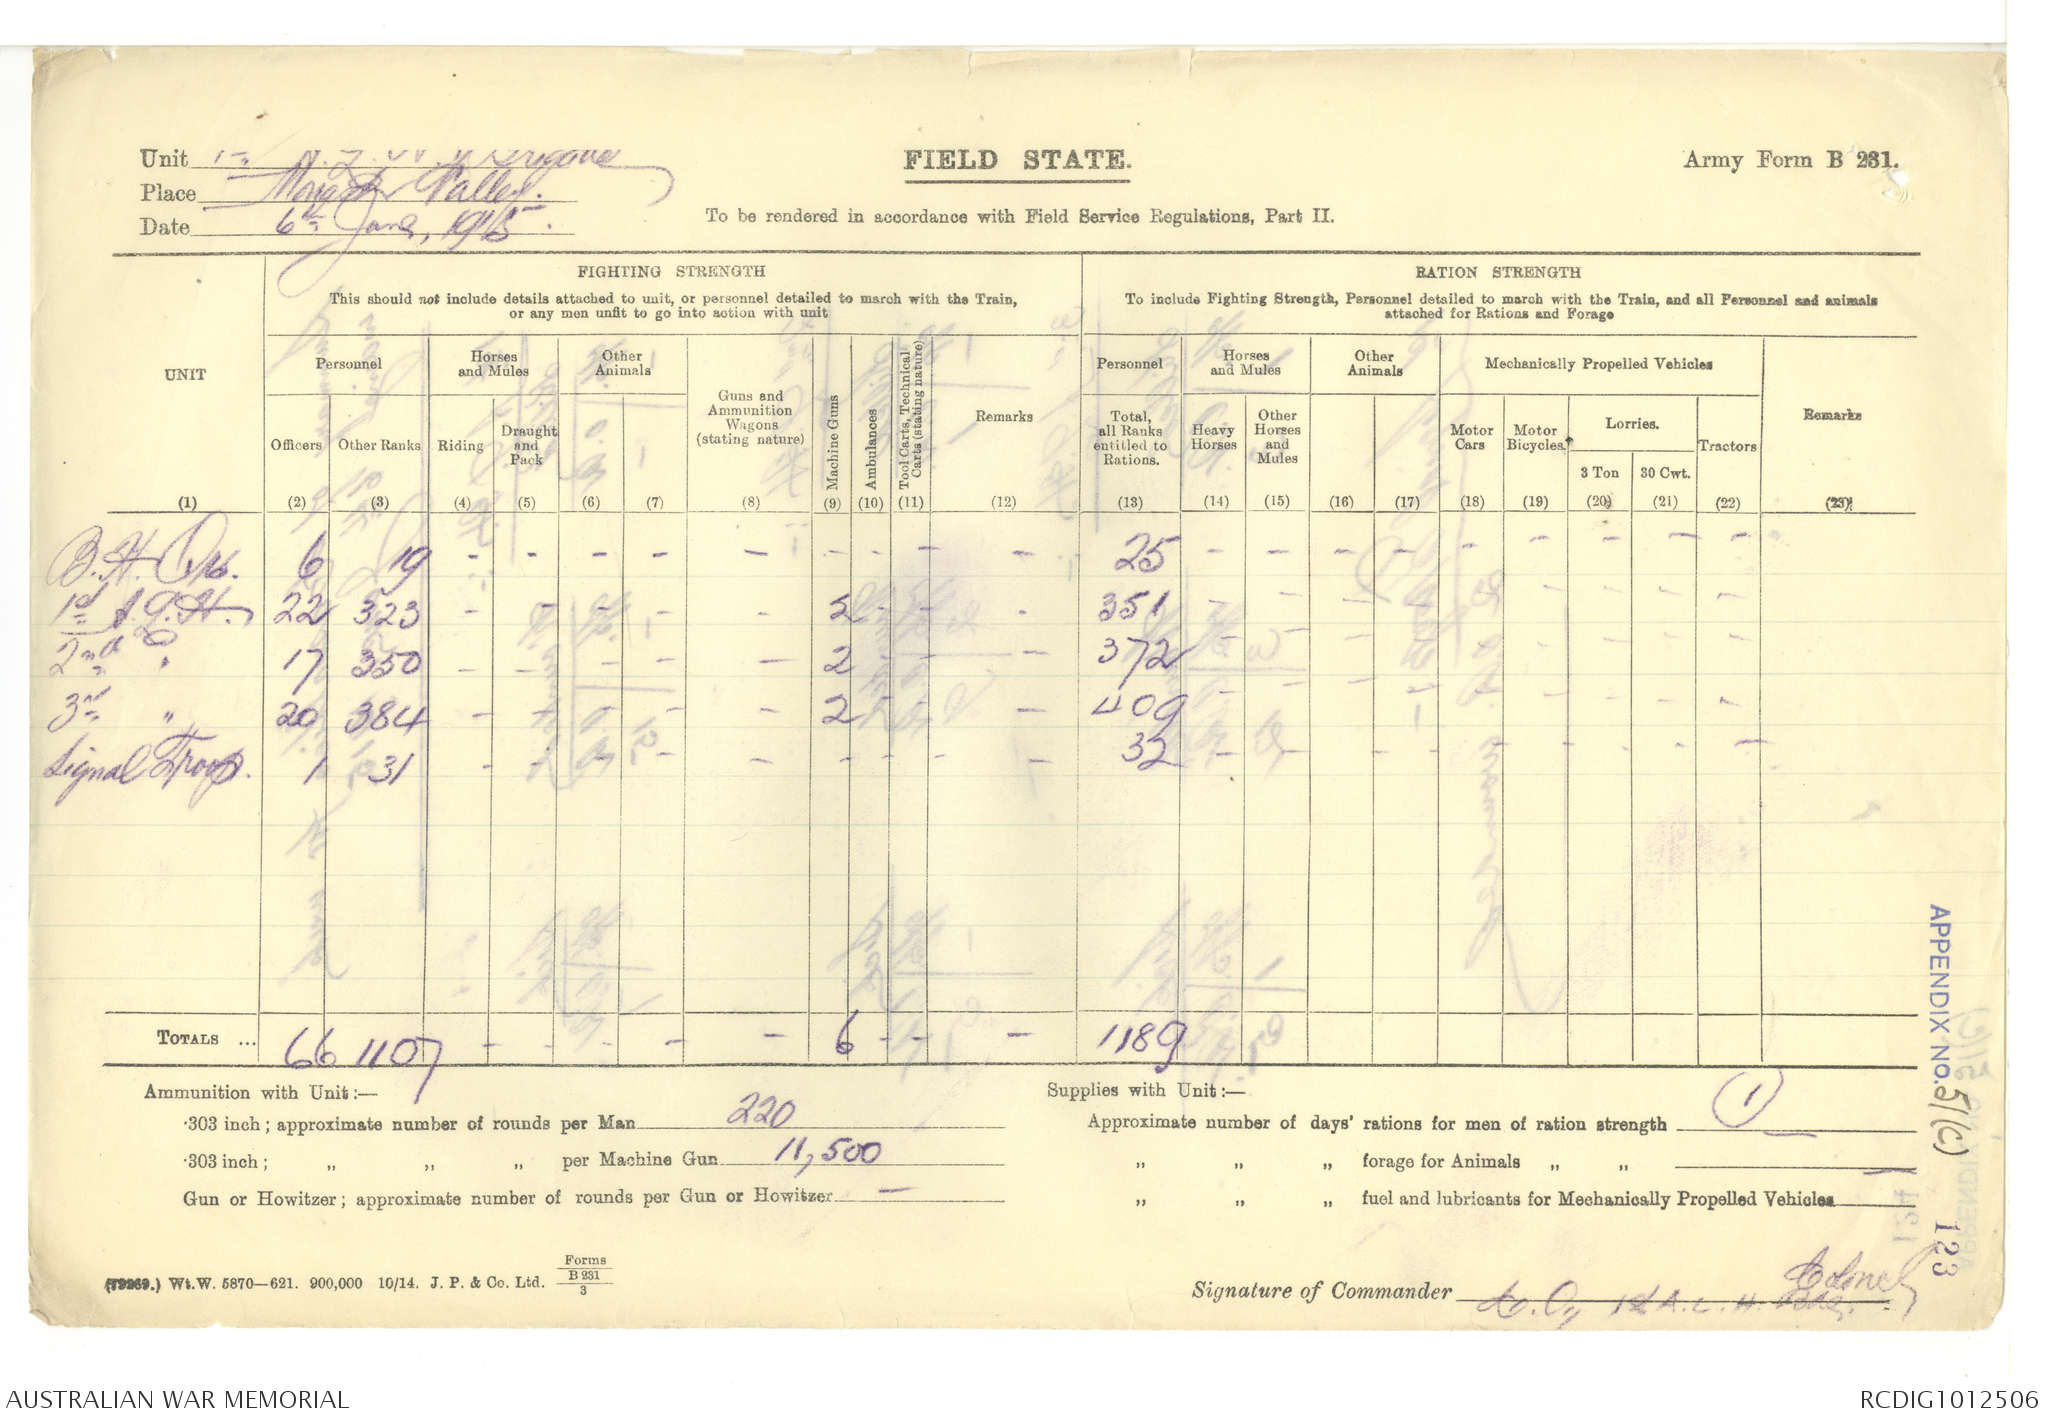 Unit 1st A. L. H. Brigade
FIELD STATE.
Army Form B 231.
Place Monash Valley.
Date 6th June, 1915.
To be rendered in accordance with Field Service Regulations, Part II.
UNIT
(1)
FIGHTING STRENGTH
This should not include details attached to unit, or personnel detailed to march with the Train,
or any men unfit to go into action with unit
RATION STRENGTH
To include Fighting Strength, Personnel detailed to march with the Train, and all Personnel and animals
attached for Rations and Forage
Personnel
Horses and Mules
Other Animals
Guns and Ammunition Wagons (stating nature)
Machine Guns
Ambulances
Tool Carts, Technical Carts (stating nature)
Remarks
Personnel
Horses and Mules
Other Animals
Mechanically Propelled Vehicles
Remarks
Officers
Other Ranks
Riding
Draught and Pack
Total, all Ranks entitled to Rations.
Heavy Horses
Other Horses and Mules
Motor Cars
Motor Bicycles.
Lorries.
3 Ton
30 Cwt.
Tractors
(2) (3) (4) (5) (6) (7) (8) (9) (10) (11) (12) (13) (14) (15) (16) (17) (18) (19) (20) (21) (22) (23)
B. H. Qrs. 6 19 - - - - - - - - - 25 - - - - - - - - -
1st A. L. H. 22 323 - - - - 2 - - - 351 - - - - - - - -
2nd " 17 350 - - - - - 2 - - - 372 - - - - - - -
3rd " 20 384 - - - - - 2 - - - 409 - - - - - - - -
Signal Troop. 1 31 - - - - - - - - - 32 - - - - - - - - -
TOTALS ... 66 1107 - - - - - 6 - - - 1189
Ammunition with Unit:—
·303 inch; approximate number of rounds per Man 220
·303 inch; „ „ „ per Machine Gun 11,500
Gun or Howitzer; approximate number of rounds per Gun or Howitzer —
Supplies with Unit:—
Approximate number of days' rations for men of ration strength 1
„ „ „ forage for Animals „ „
„ „ „ fuel and lubricants for Mechanically Propelled Vehicles
(79269.) Wt.W. 5870—621. 900,000 10/14. J. P. & Co. Ltd. Forms B 231 3
Signature of Commander
Colonel
C. O., 1st A. L. H. Bde.
APPENDIX No. 51(c)
123
AUSTRALIAN WAR MEMORIAL
RCDIG1012506